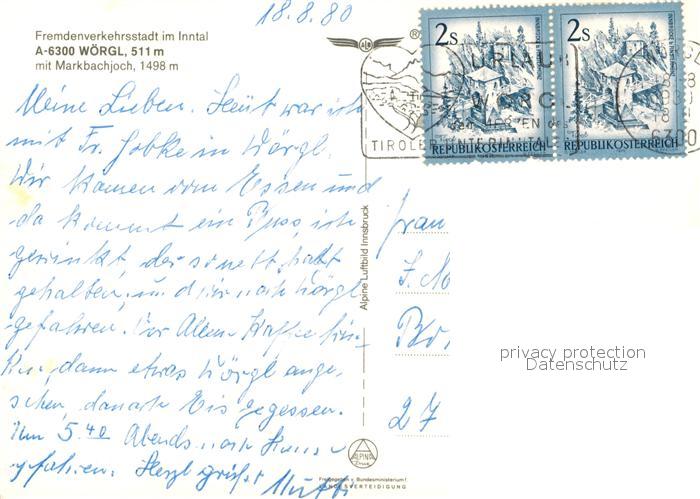 18.8.80
Fremdenverkehrsstadt im Inntal
A-6300 WÖRGL, 511 m
mit Markbachjoch, 1498 m
®
2s 2s
URLAUB
WÖRGL
6300
TIROLER UNTERINNTAL
REPUBLIK ÖSTERREICH REPUBLIK ÖSTERREICH
Meine Lieben. Heut war ich
mit Fr. in Wörgl.
Wir kamen vom Essen und
da kommt ein Buss, ich
gewinkt, der so nett, hat
gehalten, und wir nach Wörgl
gefahren. Vor Allem Kaffee
dann etwas Wörgl ange-
sehen, danach Eis gegessen.
Um 5.40 Abends nach Hause
gefahren. Herzl grüßt Mutti
Alpine Luftbild Innsbruck
Frau
Br.
27
privacy protection
Datenschutz
ALPINE
Freigegeben v. Bundesministerium f.
LANDESVERTEIDIGUNG